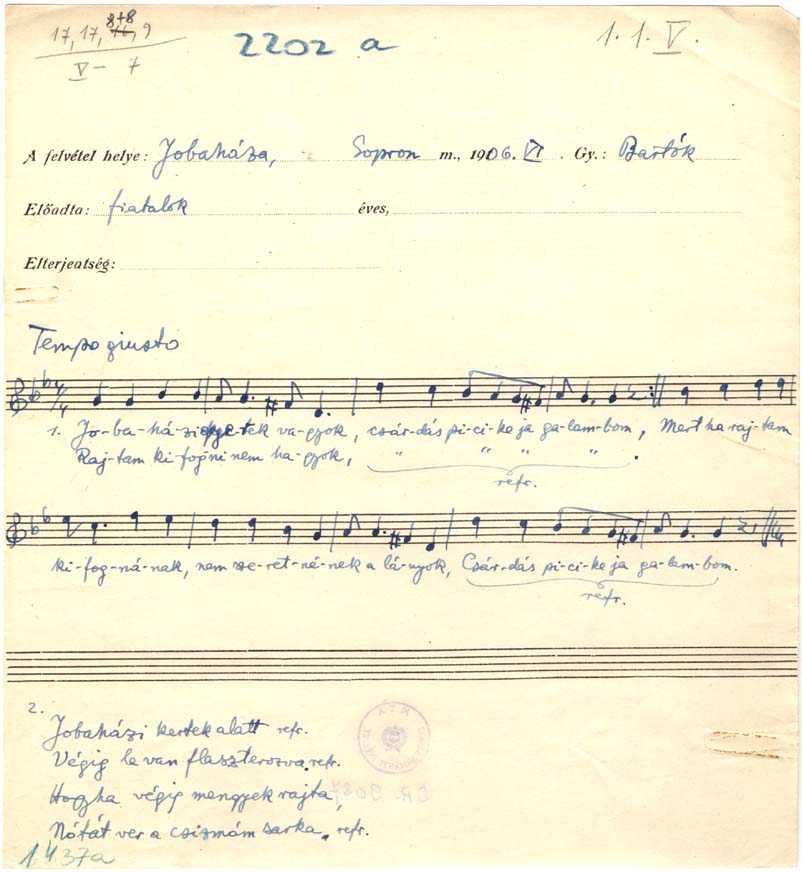 17, 17, 8+8, 9
V – 7
2202 a
1. 1. V.
A felvétel helye: Jobaháza, Sopron m., 1906. VI. Gy.: Bartók
Előadta: fiatalok éves,
Elterjeatség:
Tempo giusto
4/4
1. Jo-ba-há-zi gye-rek va-gyok, csár-dás pi-ci-ke ja ga-lam-bom, Mert ha raj-tam
Raj-tam ki-fog-ni nem ha-gyok, " " " " .
refr.
ki-fog-ná-nak, nem sze-ret-né-nek a lá-nyok, Csár-dás pi-ci-ke ja ga-lam-bom.
refr.
2.
Jobaházi kertek alatt refr.
Végig le van flaszterozva, refr.
Hogyha végig mengyek rajta,
Nótát ver a csizmám sarka, refr.
1437a